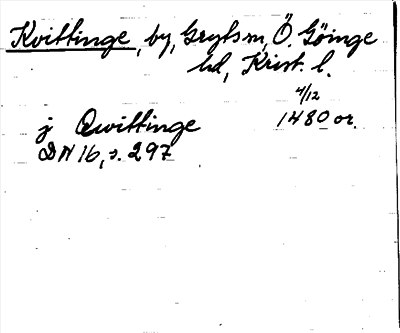 Kvittinge, by, Gryts sn, Ö. Göinge
hd, Krist. l.
4/12
j Qwittinge 1480 or.
DN 16, s. 297